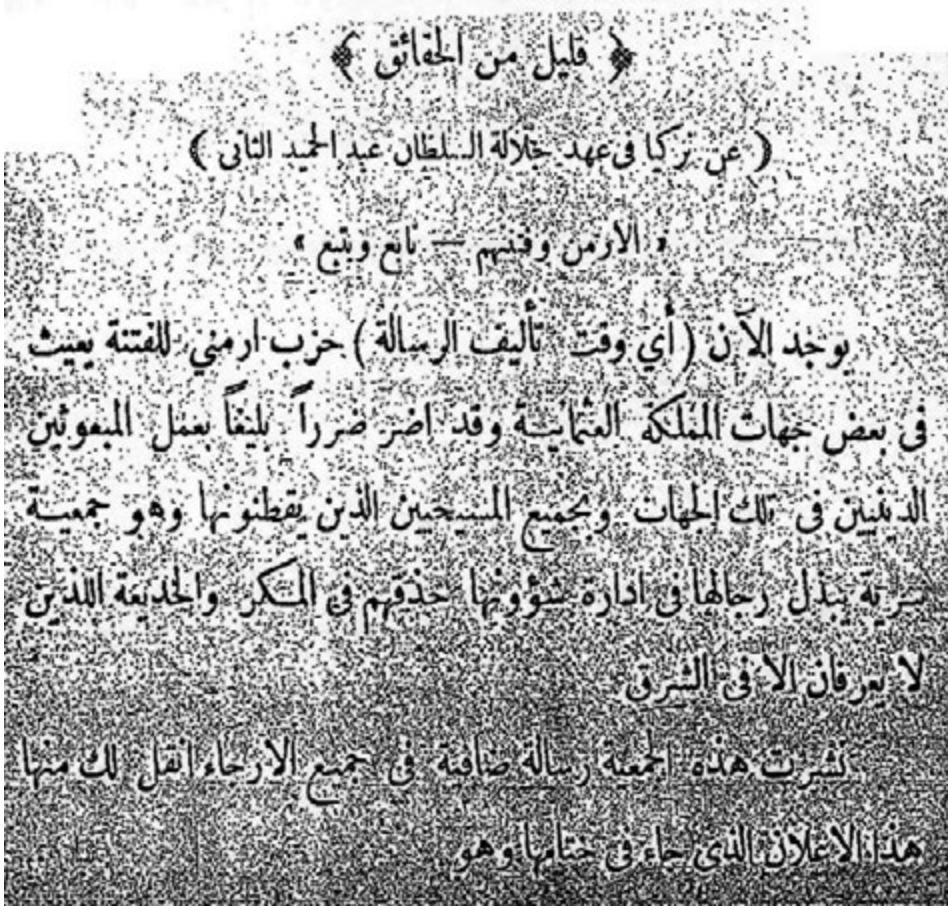 ﴿ قليل من الحقائق ﴾
( عن تركيا فى عهد جلالة السلطان عبد الحميد الثانى )
« الارمن وفتنهم — تابع ويتبع »
يوجد الآن ( أي وقت تأليف الرسالة ) حزب ارمني للفتنة يعيث
فى بعض جهات المملكة العثمانية وقد اضر ضرراً بليغاً بعمل المبعوثين
الدينيين فى تلك الجهات وبجميع المسيحيين الذين يقطنونها وهو جمعية
سرية يبذل رجالها فى ادارة شؤونها حذقهم في المكر والخديعة اللذين
لا يعرفان الا فى الشرق
نشرت هذه الجمعية رسالة ضافية فى جميع الارجاء انقل لك منها
هذا الاعلان الذى جاء فى ختامها وهو